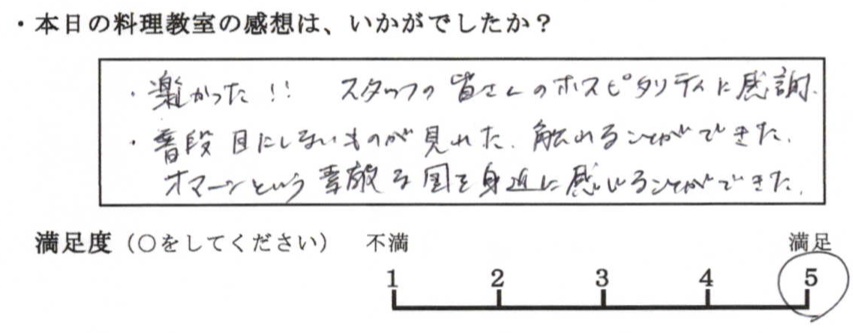 ・本日の料理教室の感想は、いかがでしたか？
・楽しかった!! スタッフの皆さんのホスピタリティに感謝.
・普段目にしないものが見れた. 触れることができた.
オマーンという素敵な国を身近に感じることができた.
満足度（○をしてください） 不満 満足
1 2 3 4 5